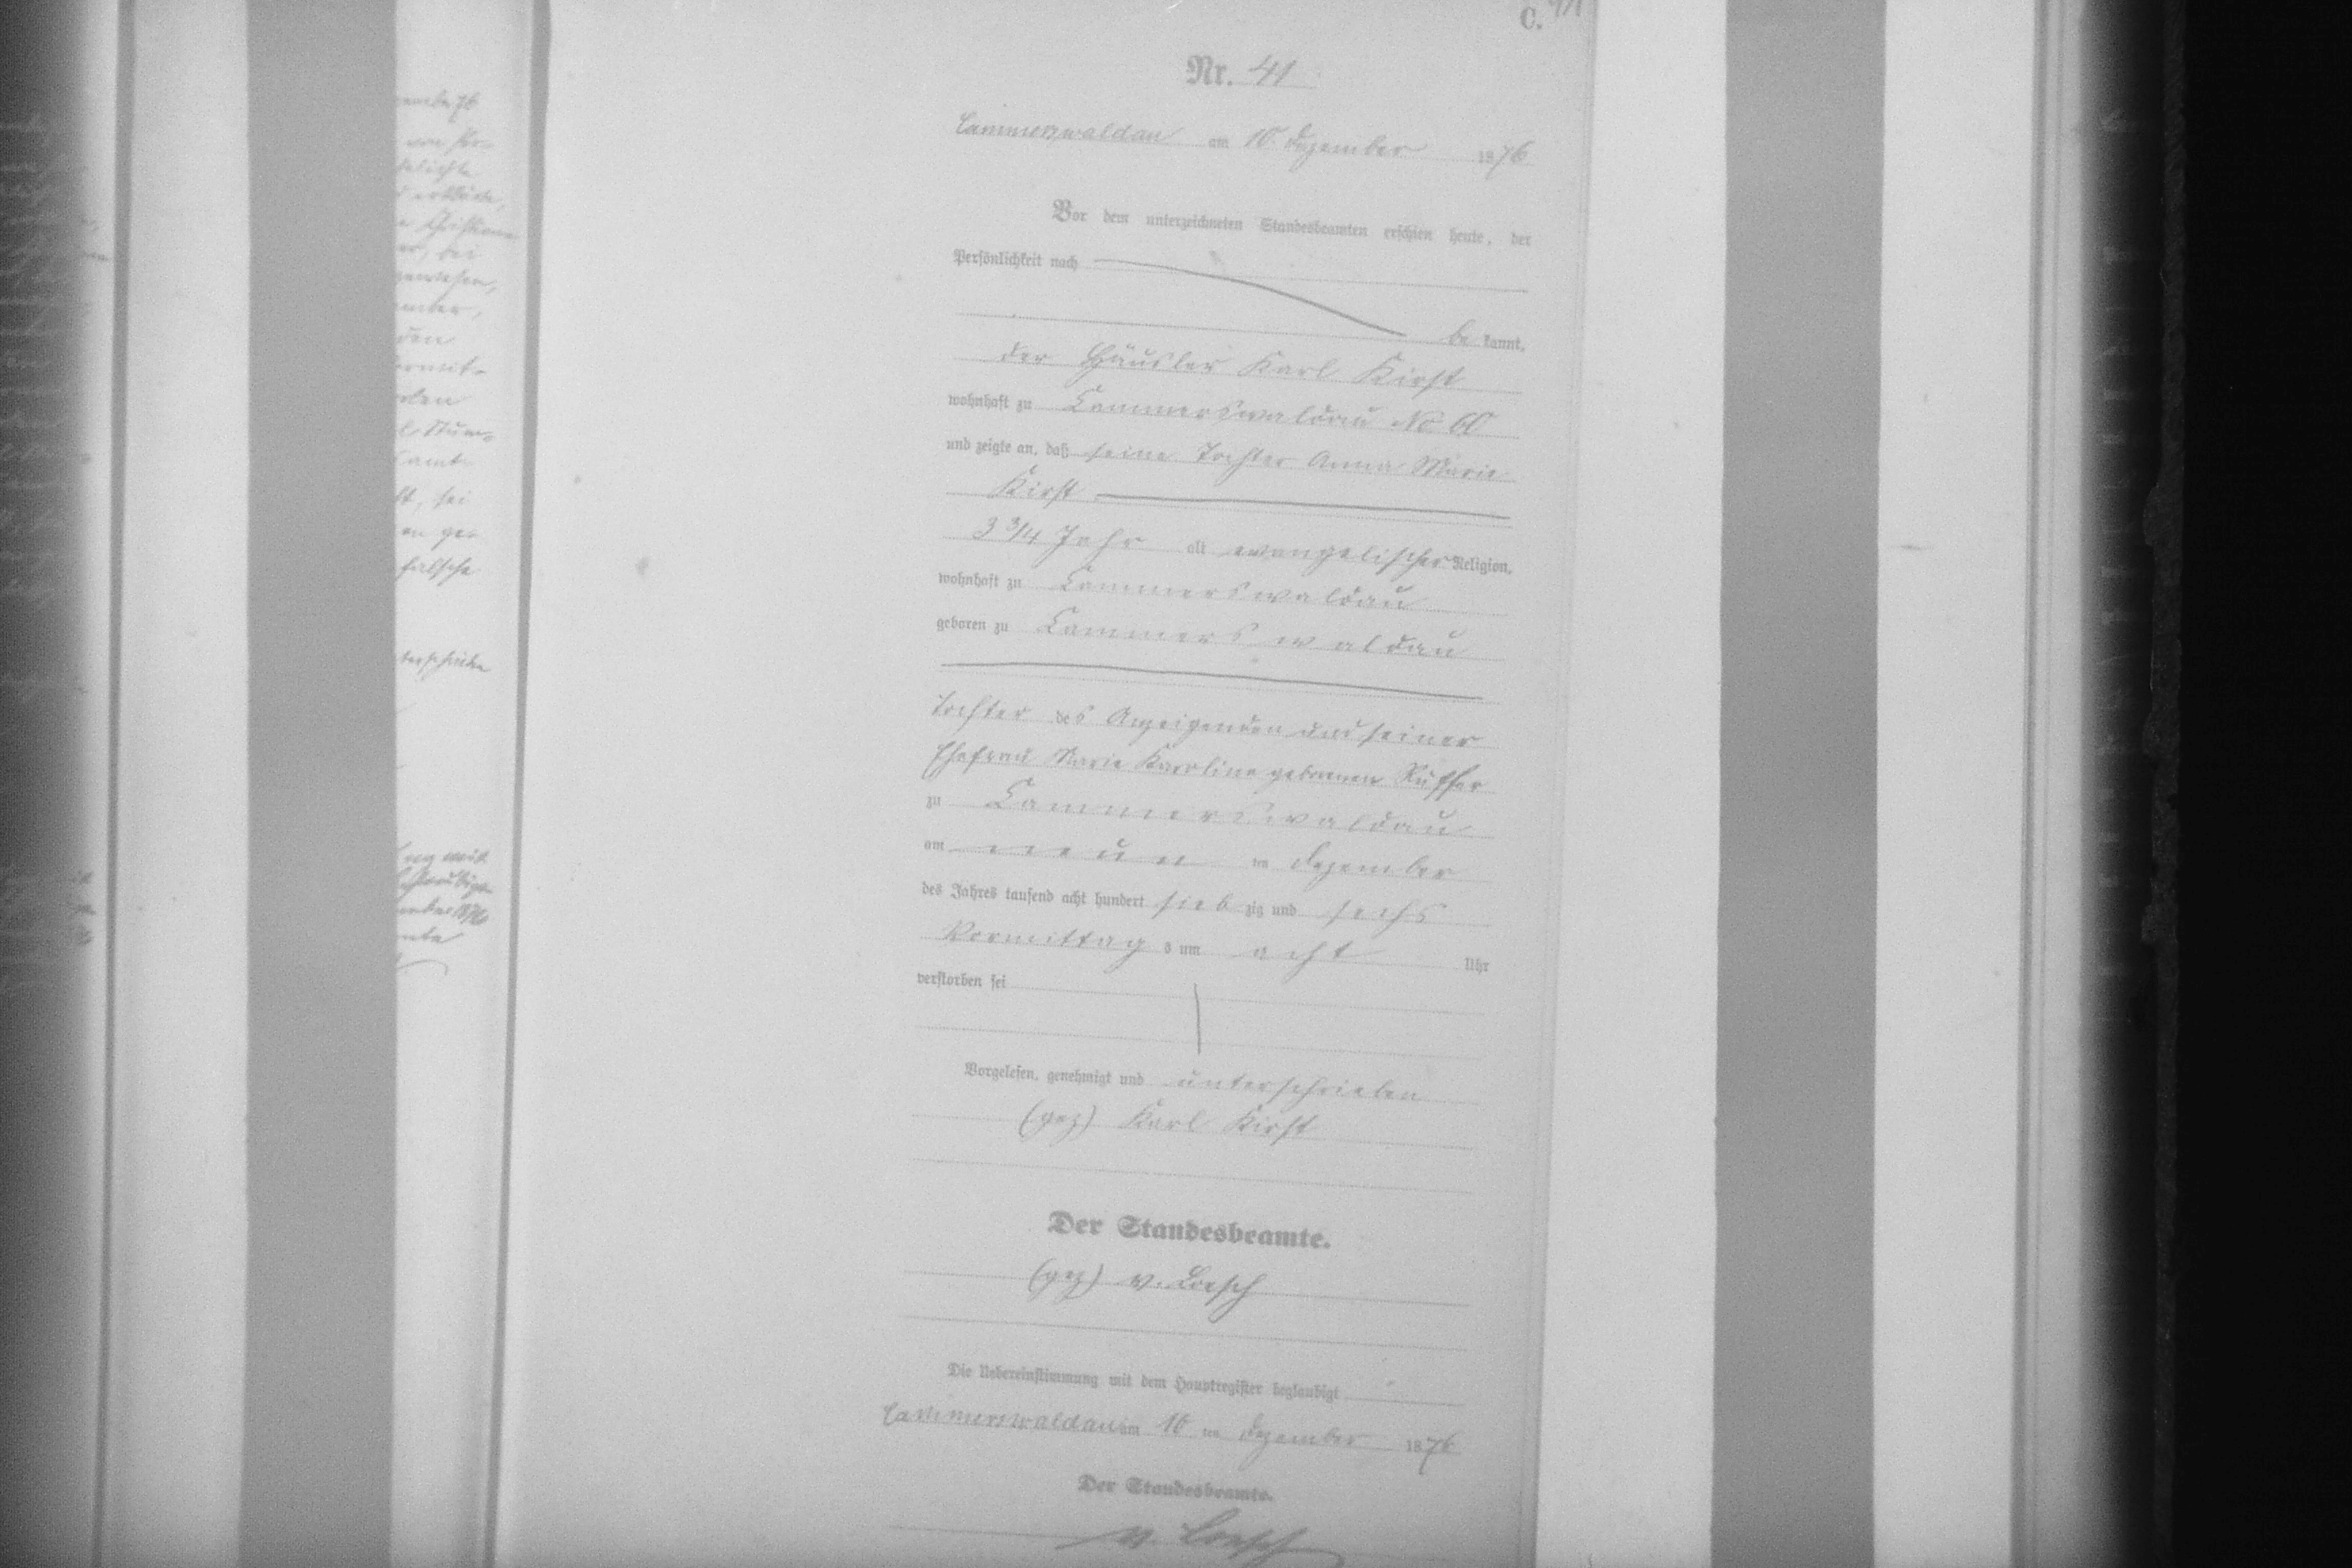 C.
Nr. 41
Cammerswaldau am 10. Dezember 1876
Vor dem unterzeichneten Standesbeamten erschien heute, der
Persönlichkeit nach
be kannt,
der Häusler Karl Kirst
wohnhaft zu Cammerswaldau No 60
und zeigte an, daß seine Tochter Anna Marie
Kirst
3 3/4 Jahr alt evangelischer Religion,
wohnhaft zu Cammerswaldau
geboren zu Cammerswaldau
Tochter des Anzeigenden und seiner
Ehefrau Marie Karoline geborenen Rüffer
zu Cammerswaldau
am neun ten Dezember
des Jahres tausend acht hundert sieb zig und sechs
Vormittag s um acht Uhr
verstorben sei
Vorgelesen, genehmigt und unterschrieben
(gez) Karl Kirst
Der Standesbeamte.
(gez) v. Loesch
Die Uebereinstimmung mit dem Hauptregister beglaubigt
Cammerswaldau am 10 ten Dezember 1876
Der Standesbeamte.
v. Loesch